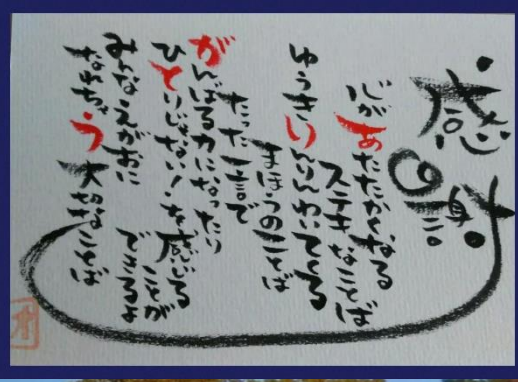 感謝
心があたたかくなる
ステキなことば
ゆうきりんりんわいてくる
まほうのことば
たった一言で
がんばる力になったり
ひとりじゃない!を感じる
ことが
できるよ
みんなえがおに
なれちゃう大切なことば